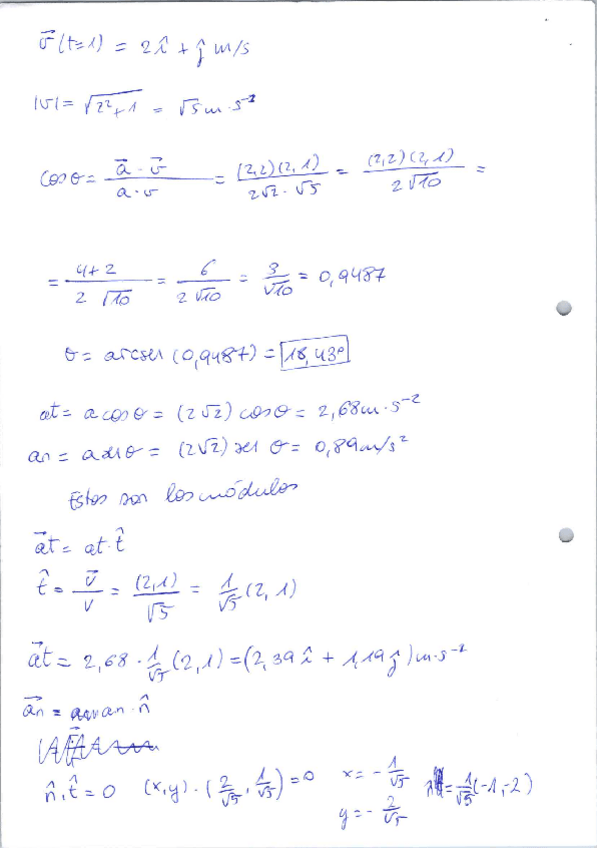 v⃗(t=1) = 2î + ĵ m/s
|v| = √(2²+1) = √5 m·s⁻²
cos θ = (a⃗ · v⃗)/(a · v) = (2,2)(2,1)/(2√2 · √5) = (2,2)(2,1)/(2√10) =
= (4+2)/(2√10) = 6/(2√10) = 3/√10 = 0,9487
θ = arcsen (0,9487) = 18,43º
at = a cos θ = (2√2) cos θ = 2,68 m·s⁻²
an = a sen θ = (2√2) sen θ = 0,89 m/s²
Estos son los módulos
a⃗t = at · t̂
t̂ = v⃗/v = (2,1)/√5 = 1/√5 (2,1)
a⃗t = 2,68 · 1/√5 (2,1) = (2,39 î + 1,19 ĵ) m·s⁻²
a⃗n = an · n̂
n̂ · t̂ = 0 (x,y) · (2/√5, 1/√5) = 0 x = - 1/√5 = 1/√5 (-1,-2)
y = - 2/√5